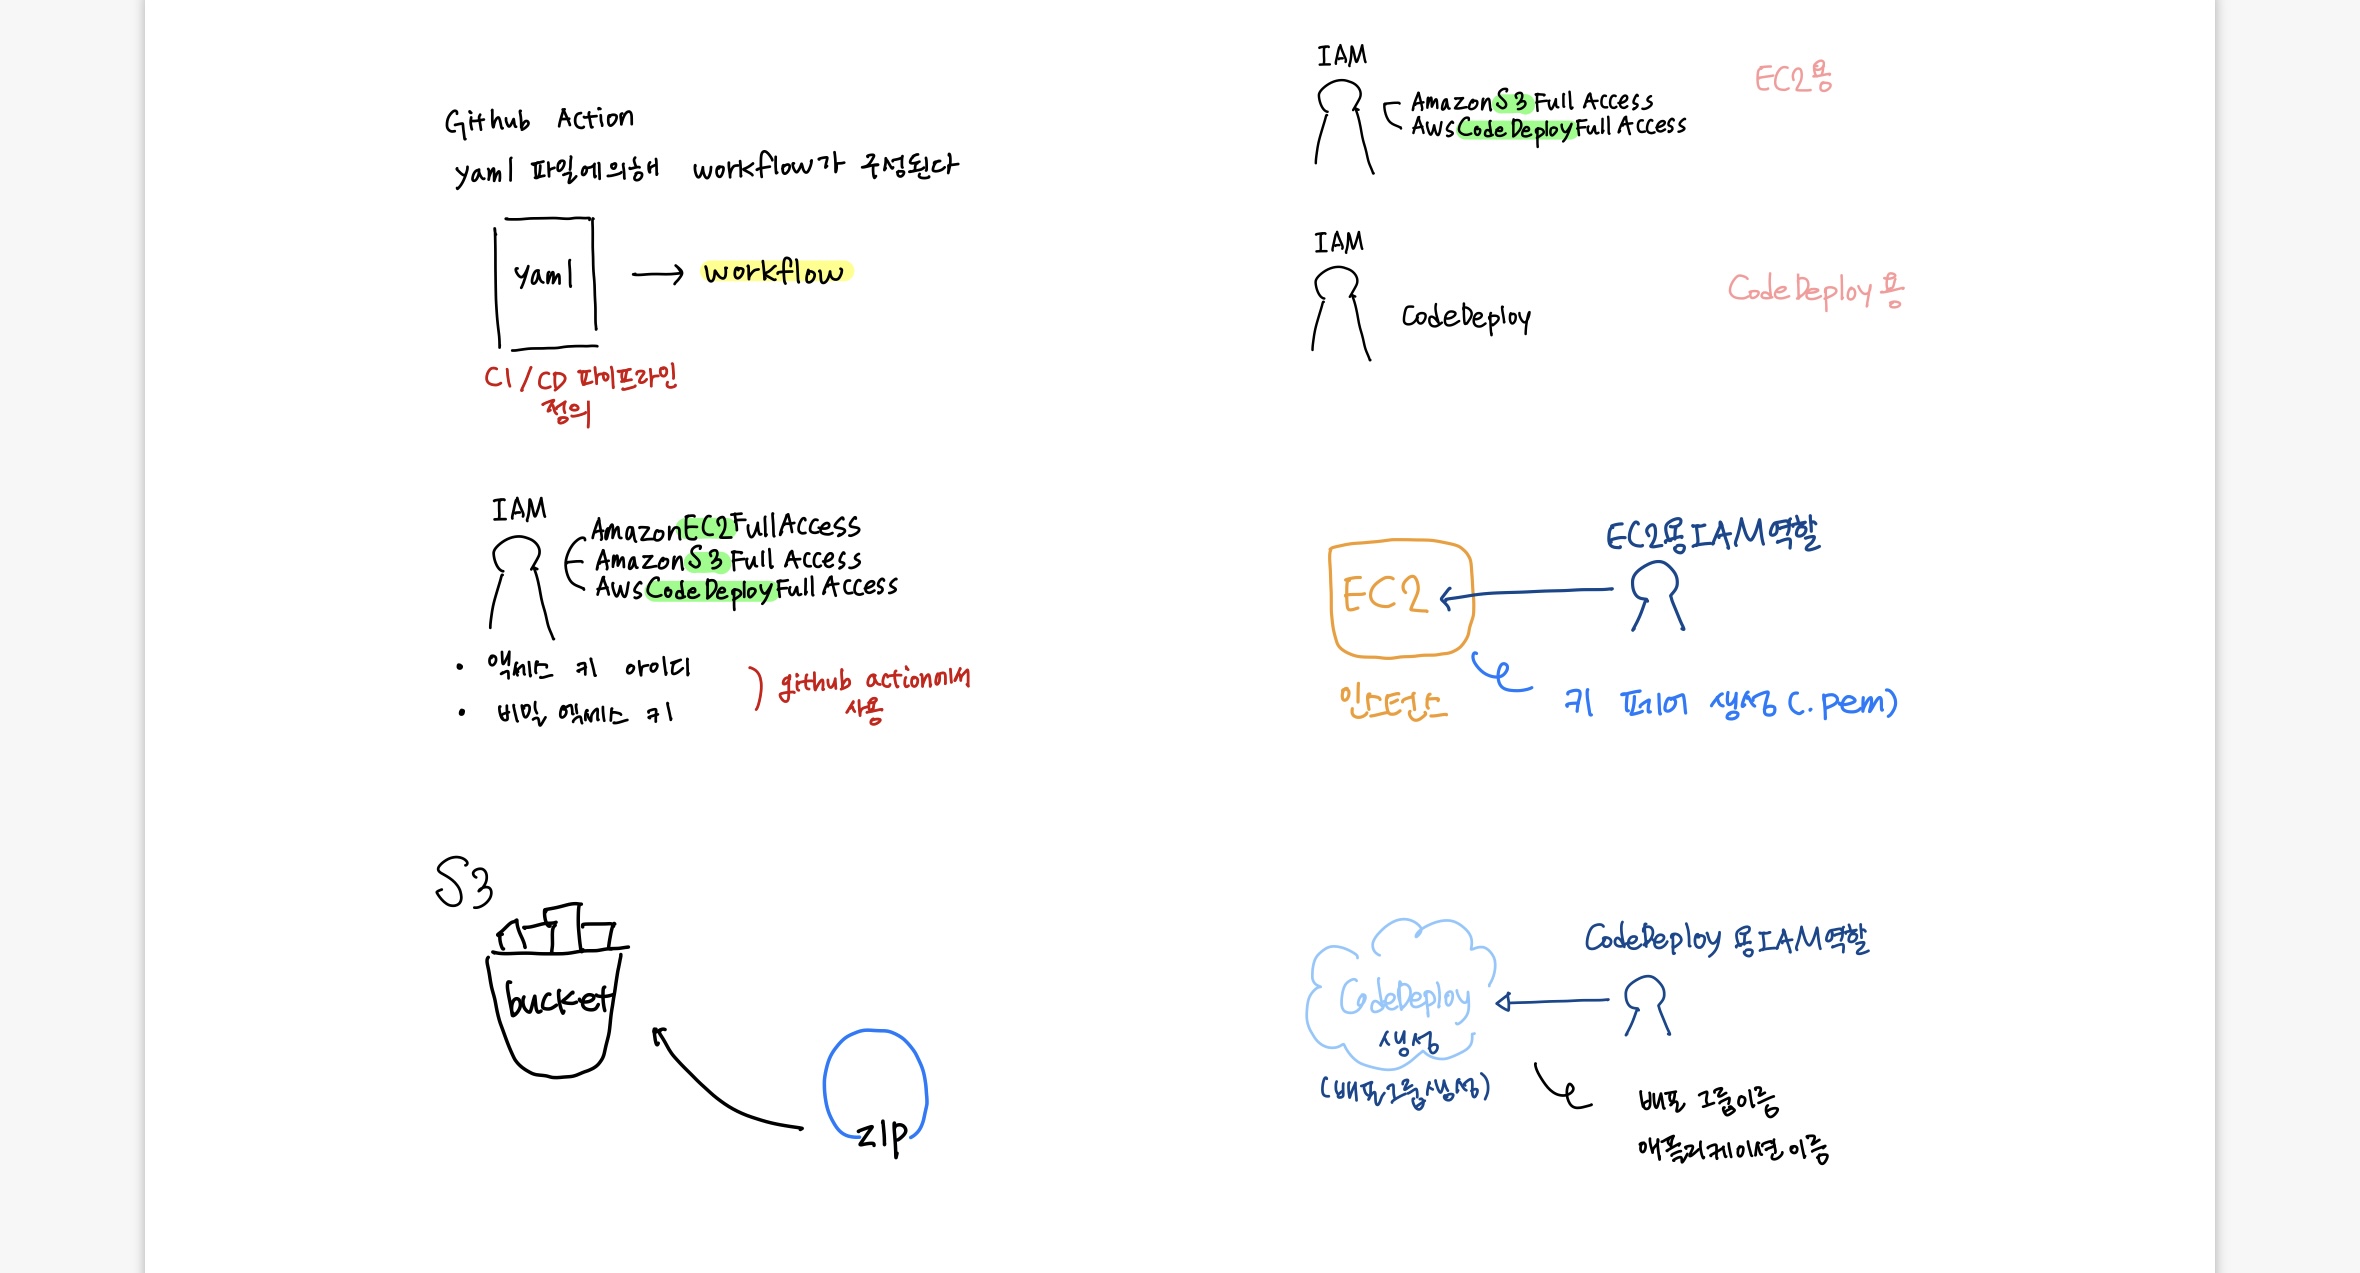 Github Action
yaml 파일에의해 workflow가 구성된다
yaml
workflow
CI/CD 파이프라인
정의
IAM
AmazonEC2FullAccess
AmazonS3Full Access
AWSCodeDeployFull Access
• 액세스 키 아이디
• 비밀 엑세스 키
github action에서
사용
S3
bucket
zip
IAM
AmazonS3Full Access
AWSCodeDeployFull Access
EC2용
IAM
CodeDeploy
CodeDeploy용
EC2용IAM역할
EC2
인스턴스
키 페어 생성 (.pem)
CodeDeploy 용IAM역할
CodeDeploy
생성
(배포그룹생성)
배포 그룹이름
애플리케이션이름